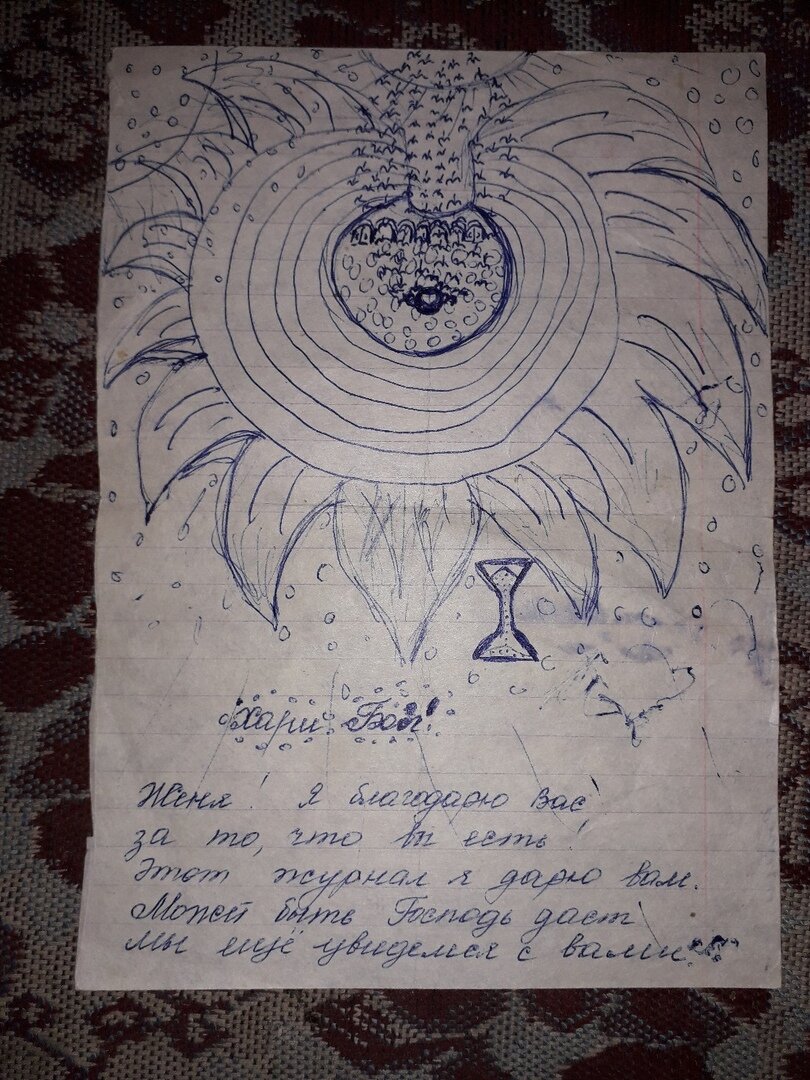 Хари Бол!
Женя! Я благодарю Вас
за то, что вы есть!
Этот журнал я дарю вам.
Может быть Господь даст
мы ещё увидемся с вами!